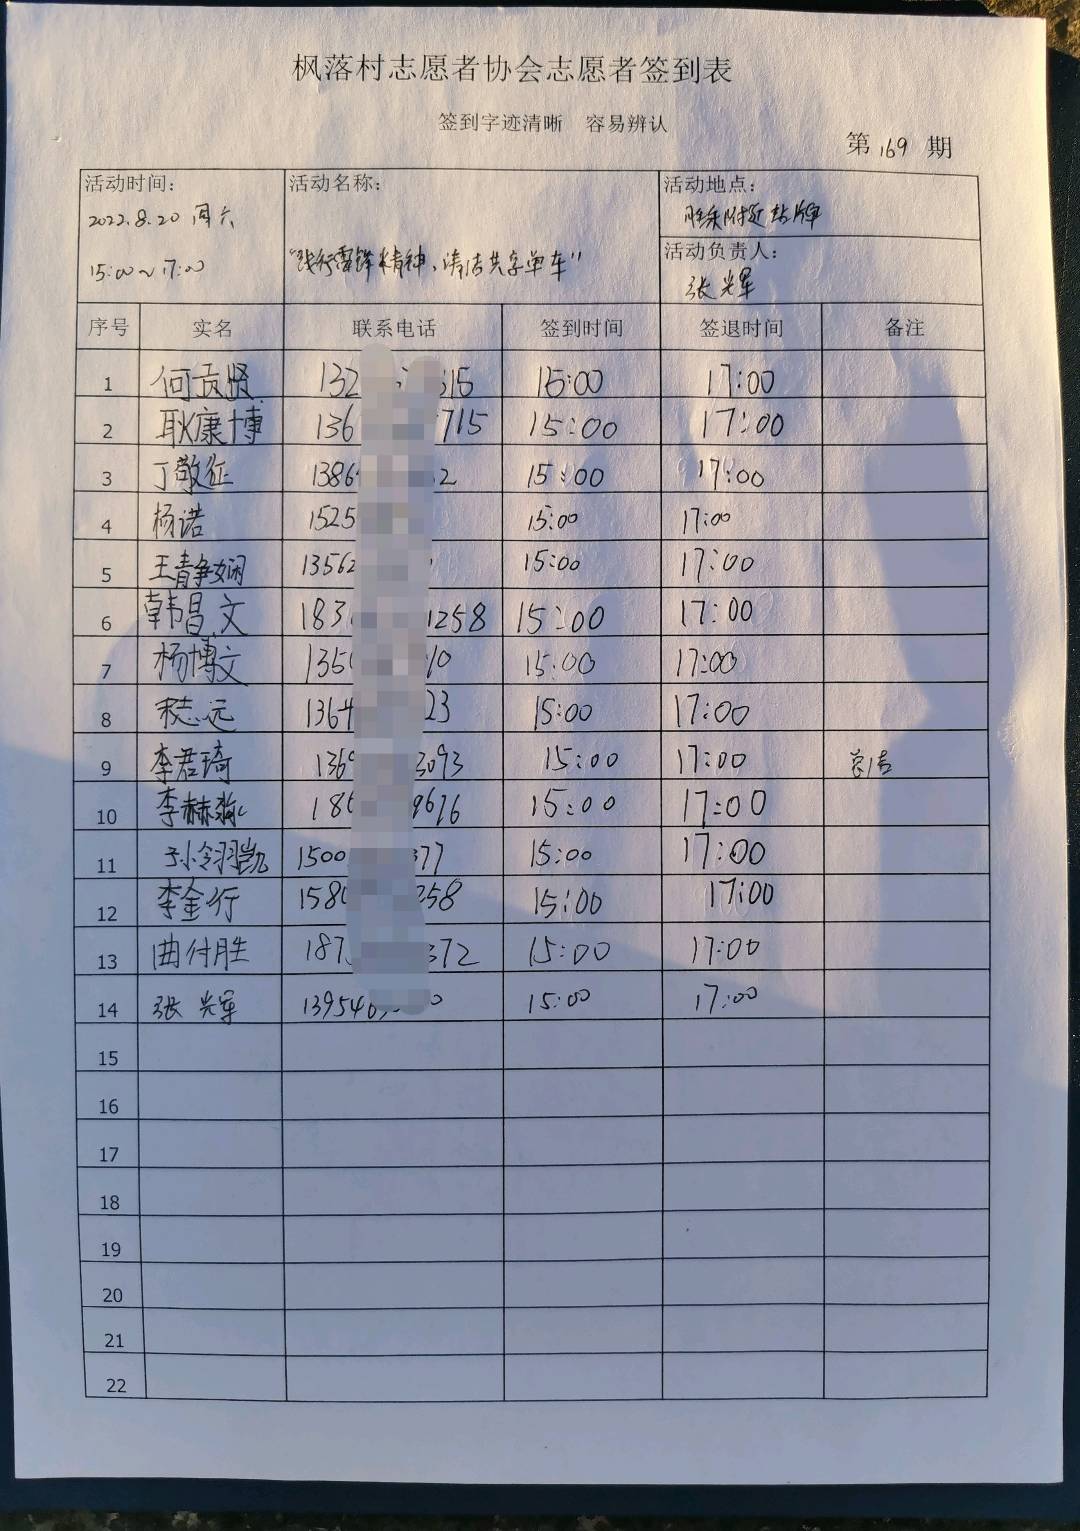 枫落村志愿者协会志愿者签到表
签到字迹清晰 容易辨认
第169期
活动时间: 活动名称: 活动地点:
2022.8.20 周六 附近站牌
15:00~17:00 "践行雷锋精神、清洁共享单车" 活动负责人:
张光军
序号 实名 联系电话 签到时间 签退时间 备注
1 何贡贤 132 615 15:00 17:00
2 耿康博 136 715 15:00 17:00
3 丁敬征 1386 2 15:00 17:00
4 杨诺 1525 15:00 17:00
5 王静娴 13562 15:00 17:00
6 韩昌文 183 1258 15:00 17:00
7 杨博文 135 10 15:00 17:00
8 志远 1364 23 15:00 17:00
9 李君琦 136 3093 15:00 17:00 总结
10 李赫 186 9676 15:00 17:00
11 孙翎凯 1500 377 15:00 17:00
12 李金行 158 258 15:00 17:00
13 曲付胜 187 372 15:00 17:00
14 张光军 13954 0 15:00 17:00
15
16
17
18
19
20
21
22